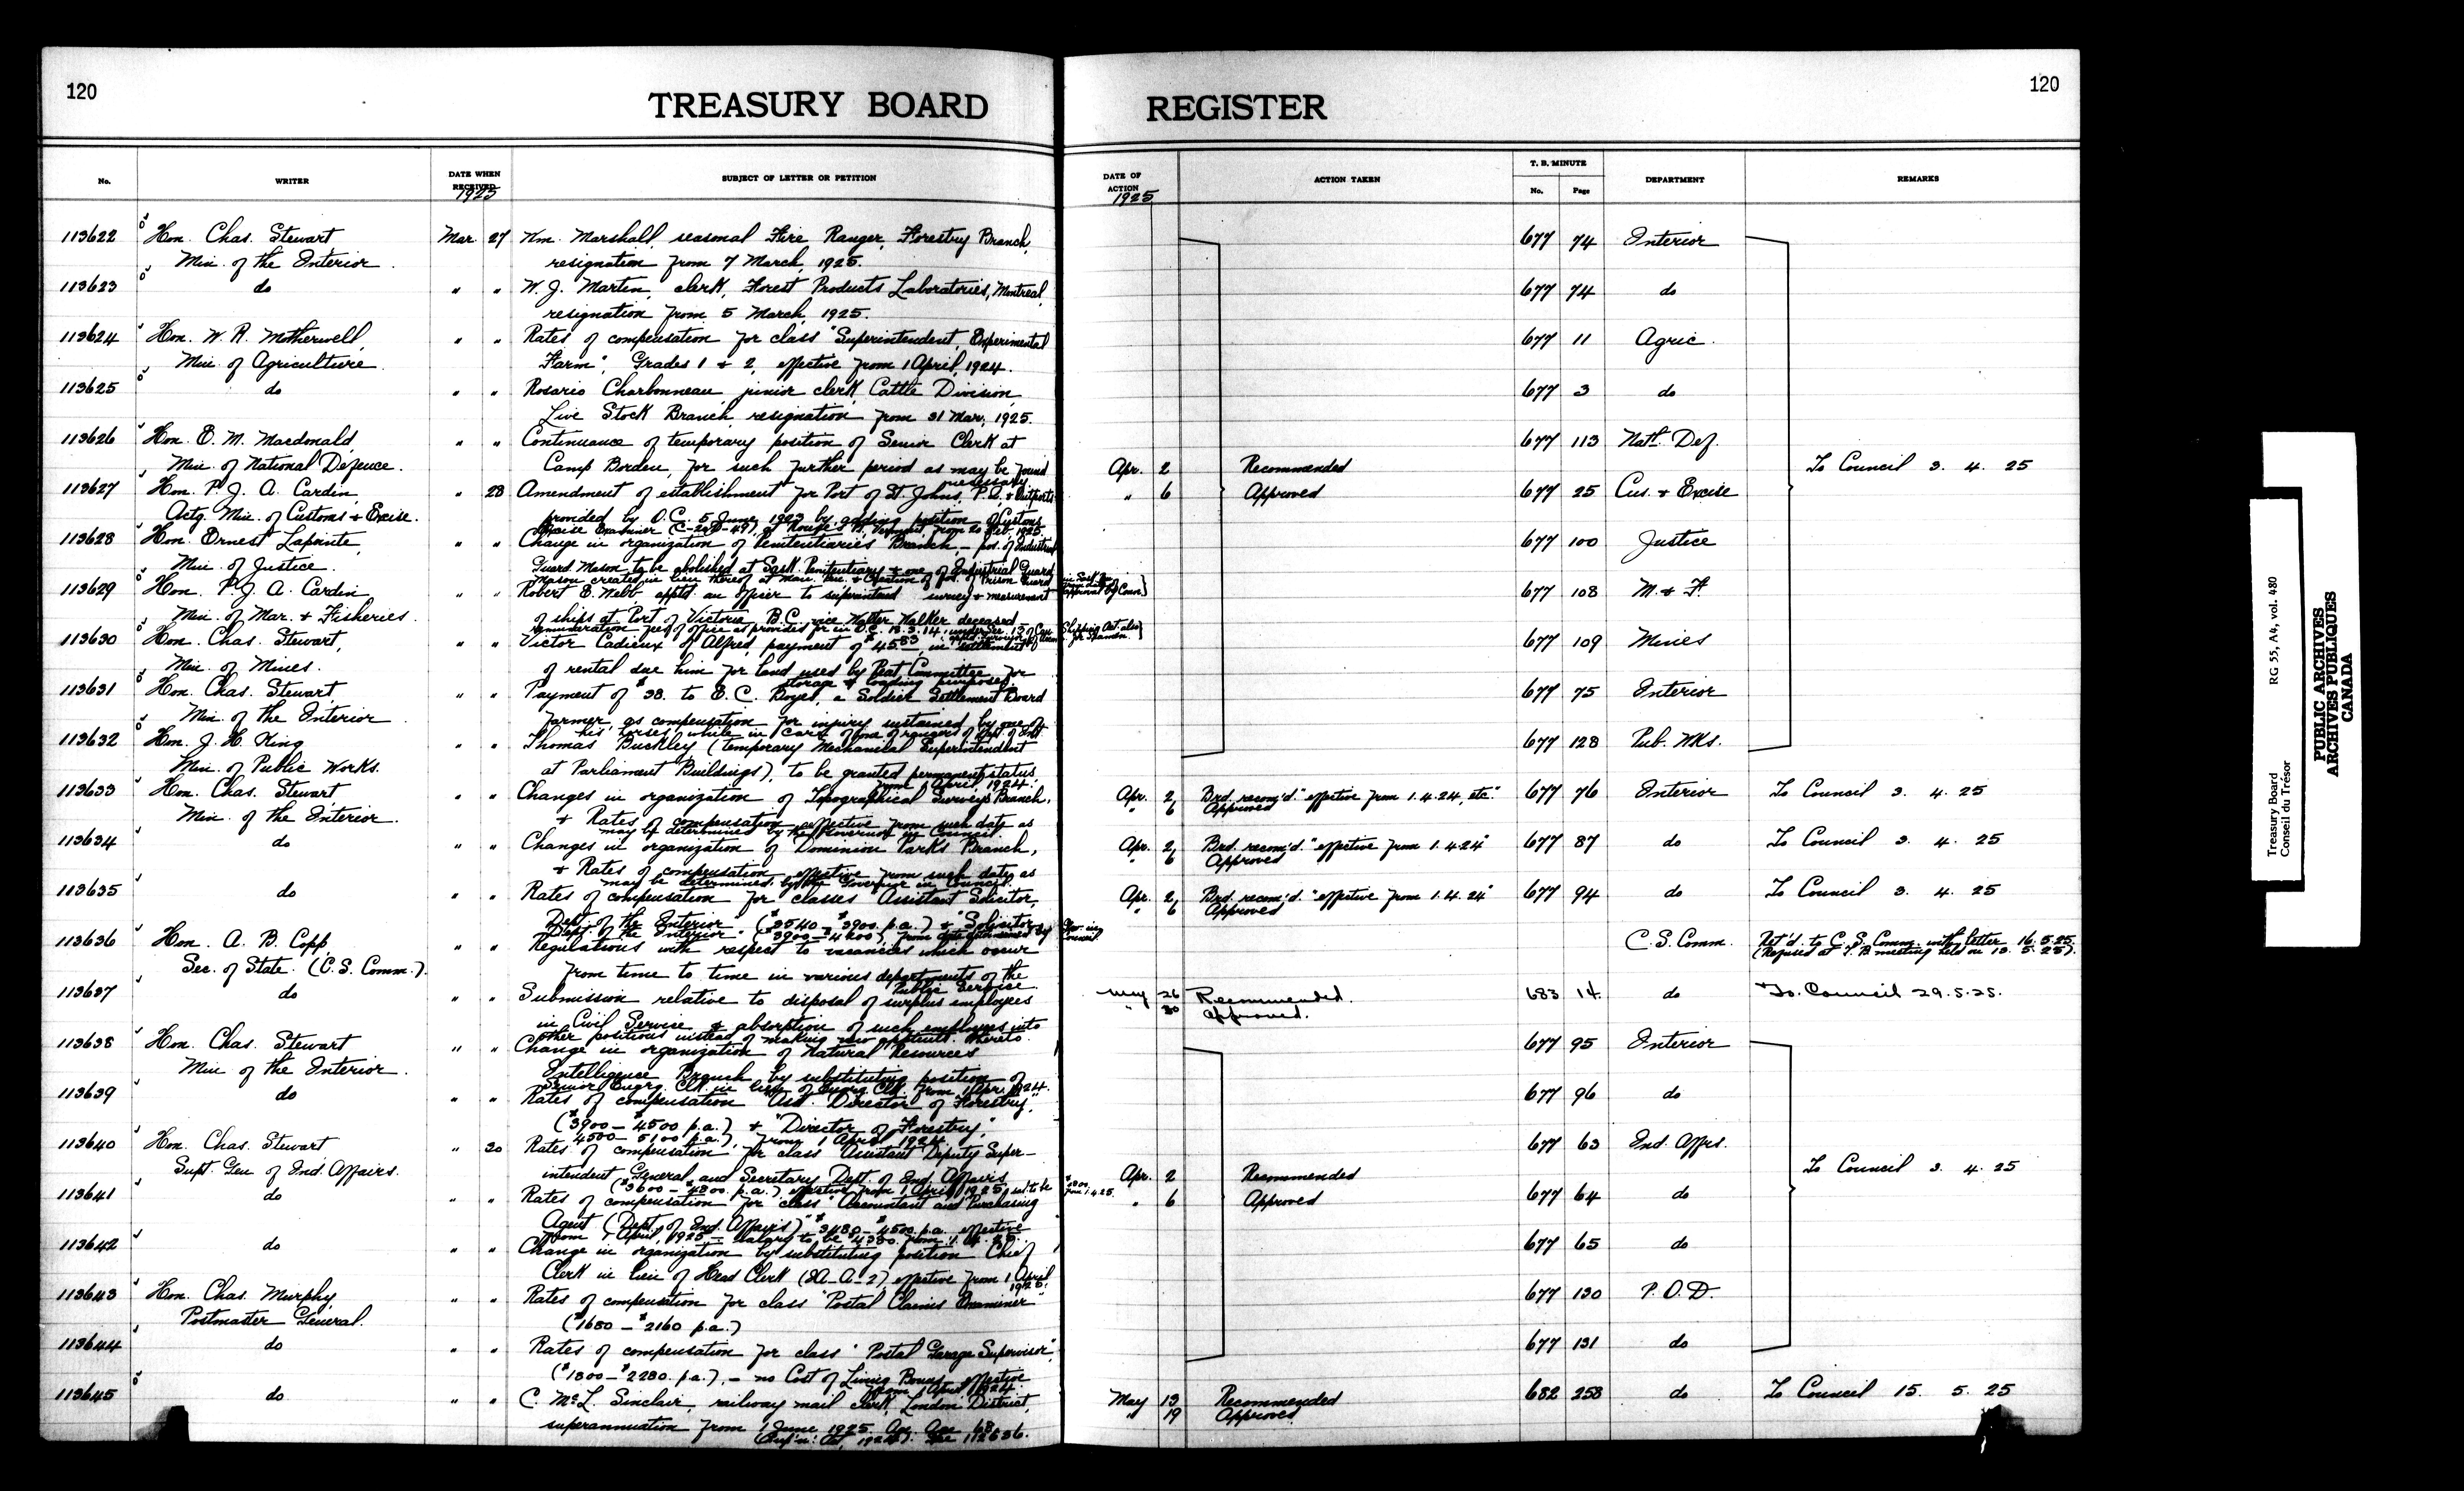 120
TREASURY BOARD REGISTER
120
No. WRITER DATE WHEN RECEIVED SUBJECT OF LETTER OR PETITION DATE OF ACTION ACTION TAKEN T. B. MINUTE No. Page DEPARTMENT REMARKS
1925 1925
113622 Hon. Chas. Stewart, Mar. 27 Wm. Marshall, seasonal Fire Ranger, Forestry Branch, 677 74 Interior
Min. of the Interior. resignation from 7 March, 1925.
113623 do " " W. J. Martin, clerk, Forest Products Laboratories, Montreal, 677 74 do
resignation from 5 March, 1925.
113624 Hon. W. R. Motherwell, " " Rates of compensation for class "Superintendent, Experimental 677 11 Agric.
Min. of Agriculture. Farm", Grades 1 & 2, effective from 1 April, 1924.
113625 do " " Rosario Charbonneau, junior clerk, Cattle Division, 677 3 do
Live Stock Branch, resignation from 31 Mar., 1925.
113626 Hon. E. M. Macdonald, " " Continuance of temporary position of Senior Clerk at 677 113 Natl. Def.
Min. of National Defence. Camp Borden, for such further period as may be found necessary Apr. 2 Recommended To Council 3. 4. 25
113627 Hon. P. J. A. Cardin, " 28 Amendment of establishment for Port of St. Johns, P.Q. & Outports " 6 Approved 677 25 Cus. & Excise
Actg. Min. of Customs & Excise. provided by O.C. 5 June, 1923 by adding position of Customs
Excise Examiner
113628 Hon. Ernest Lapointe, " " Change in organization of Penitentiaries Branch, - pos. of Industrial 677 100 Justice
Min. of Justice. Guard Mason to be abolished at Sask. Penitentiary & one of Industrial Guard
Mason created in lieu thereof at Man. Pen. & Creation of pos. of Prison Guard
113629 Hon. P. J. A. Cardin, " " Robert E. Webb apptd. an officer to superintend survey & measurement 677 108 M. & F.
Min. of Mar. & Fisheries. of ships at Port of Victoria, B.C. vice Walter Walker deceased
113630 Hon. Chas. Stewart, " " Victor Cadieux of Alfred, payment of in settlement 677 109 Mines
Min. of Mines. of rental due him for land used by Peat Committee for
storage & loading purposes.
113631 Hon. Chas. Stewart, " " Payment of $38. to E. C. Royel, a Soldier Settlement Board 677 75 Interior
Min. of the Interior. farmer, as compensation for injury sustained by one of
his horses while in care of one of rangers of Dept. of Int.
113632 Hon. J. H. King " " Thomas Buckley (temporary Mechanical Superintendent 677 128 Pub. Wks.
Min. of Public Works. at Parliament Buildings), to be granted permanent status
from 1 April, 1924.
113633 Hon. Chas. Stewart " " Changes in organization of Topographical Surveys Branch, Apr. 2, Brd. recom'd. "effective from 1.4.24, etc." 677 76 Interior To Council 3. 4. 25
Min. of the Interior. & Rates of compensation effective from such date as " 6 Approved
may be determined by the Governor in Council.
113634 do " " Changes in organization of Dominion Parks Branch, Apr. 2, Brd. recom'd. "effective from 1.4.24" 677 87 do To Council 3. 4. 25
& Rates of compensation effective from such date as " 6 Approved
may be determined by the Governor in Council.
113635 do " " Rates of compensation for classes "Assistant Solicitor, Apr. 2, Brd. recom'd. "effective from 1.4.24" 677 94 do To Council 3. 4. 25
Dept. of the Interior" ($3540 - $3900 p.a.) & "Solicitor, " 6 Approved
Dept. of the Interior"
113636 Hon. A. B. Copp " " Regulations with respect to vacancies which occur C. S. Comm. Ret'd. to C. S. Comm. with letter 16.5.25.
Sec. of State. (C.S. Comm.). from time to time in various departments of the (Refused at T. B. meeting held on 13. 5. 25).
Public Service.
113637 do " " Submission relative to disposal of surplus employees May 26 Recommended. 683 14. do To Council 29.5.25.
in Civil Service & absorption of such employees into " 30 approved.
other positions instead of making new apptmts. thereto.
113638 Hon. Chas. Stewart " " Change in organization of Natural Resources 677 95 Interior
Min. of the Interior. Intelligence Branch by substituting position of
Senior Engrg. Clk. in lieu of Engrg. Clk. from 1 Apr. 1924.
113639 do " " Rates of compensation "Asst. Director of Forestry," 677 96 do
($3900 - $4500 p.a.) & "Director of Forestry,"
4500 - 5100 p.a.), from 1 April 1924.
113640 Hon. Chas. Stewart, " 30 Rates of compensation for class "Assistant Deputy Super- 677 63 Ind. Affrs.
Supt. Gen. of Ind. Affairs. intendent General and Secretary Dept. of Ind. Affairs Apr. 2 Recommended To Council 3. 4. 25
($3600 - $4800 p.a.) effective from 1 April 1925,
113641 do " " Rates of compensation for class "Accountant and Purchasing " 6 Approved 677 64 do
Agent (Dept. of Ind. Affairs)" $3480 - $4500 p.a. effective
from 1 April, 1925
113642 do " " Change in organization by substituting position Chief 677 65 do
Clerk in lieu of Head Clerk (IA-A-2) effective from 1 April
1925.
113643 Hon. Chas. Murphy, " " Rates of compensation for class "Postal Claims Examiner" 677 130 P.O.D.
Postmaster General. ($1680 - $2160 p.a.)
113644 do " " Rates of compensation for class "Postal Garage Supervisor", 677 131 do
($1800 - $2280. p.a.), - no Cost of Living Bonus - effective
from 1 April 1924.
113645 do " " C. McL. Sinclair, railway mail clerk, London District, May 13 Recommended 682 258 do To Council 15. 5. 25
superannuation from 1 June 1925. " 19 Approved
Treasury Board RG 55, A4, vol. 480
Conseil du Trésor
PUBLIC ARCHIVES
ARCHIVES PUBLIQUES
CANADA